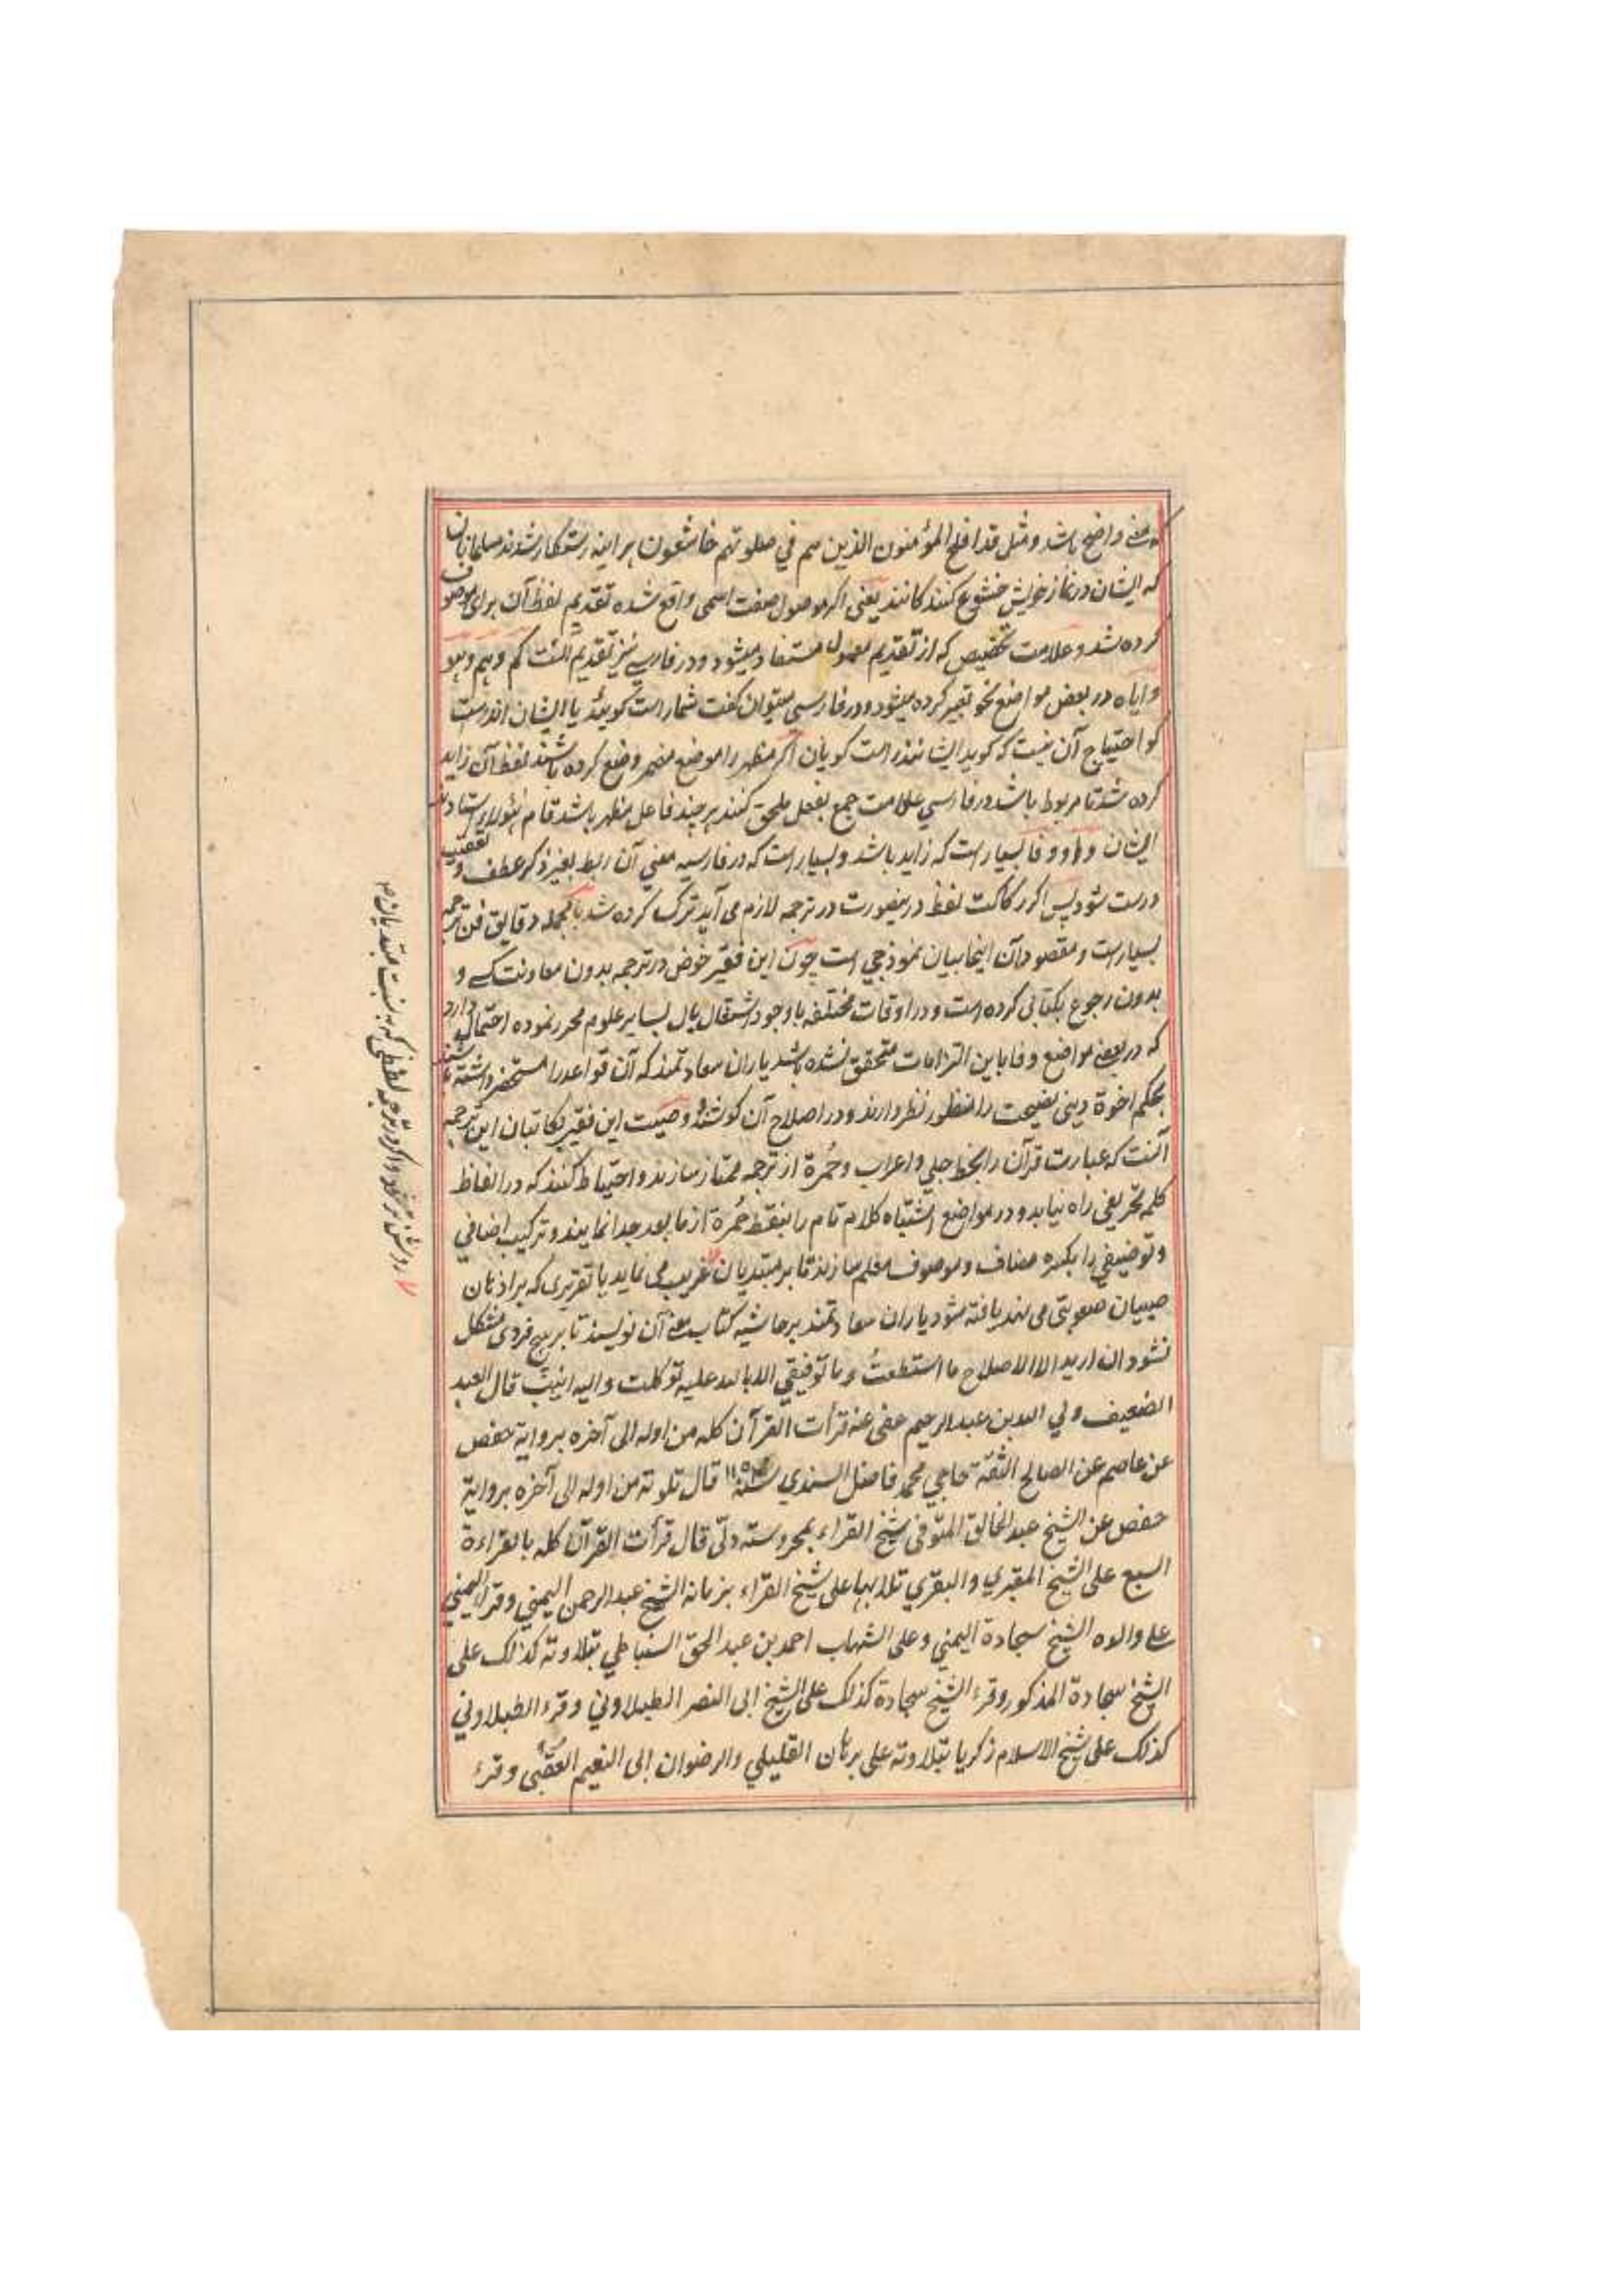 که معنی واضح باشد و مثل قد افلح المؤمنون الذین هم في صلوتهم خاشعون هر اینه رستکار شدند مسلمانان
که ایشان در نماز خویش خشوع کنندکانند یعنی اکر موصول صفت اسمی واقع شده تقدیم لفظ آن برای موصوف
کرده شد و علامت تخصیص که از تقدیم معمول مستفاد میشود و در فارسے نیز تقدیم کم و هم و هو
و ایاه در بعض مواضع نحو تعبیر کرده میشود و در فارسی میتوان کفت شما راست کویند یا ایشان اند راست
کو احتیاج آن نیست که کوید ایشانند راست کویان اکر مظهر را موضع مضمر وضع کرده باشند لفظ آن زاید
کرده شد تا مربوط باشد در فارسي علامت جمع بفعل ملحق کنند هر چند فاعل مظهر باشد
ایشان و واو و فا بسیار است که زاید باشد و بسیار است که در فارسیه معنی آن ربط بغیر ذکر عطف و تعقیب
درست شود پس اکر رکاکت لفظ درینصورت در ترجمه لازم می آید ترک کرده شد بالجمله دقایق فن ترجمه
بسیار است و مقصود آن اینجا بیان نموذجی است چون این فقیر خوض در ترجمه بدون معاونت کسے و
بدون رجوع بکتابی کرده است و در اوقات مختلفه با وجود اشتغال بال بسایر علوم محرر نموده احتمال دارد
که در بعضے مواضع وفا باین التزامات متحقق نشده باشد یاران سعادتمند که آن قواعد را مستحضر داشته باشند
بحکم اخوة دینی نصیحت را منظور نظر دارند و در اصلاح آن کوشند و وصیت این فقیر بکاتبان این ترجمه
آنست که عبارت قرآن را بخط جلی و اعراب و حُمرة از ترجمه ممتاز سازند و احتیاط کنند که در الفاظ
کلمه تحریفی راه نیابد و در مواضع اشتباه کلام تام را بنقط حُمرة از ما بعد جدا نمایند و ترکیب اضافي
و توصیفي را بکسره مضاف و موصوف معلم سازند تا بر مبتدیان غریب می نماید یا تقریری که بر اذهان
صبیان صعوبتی می نهد یافته شود یاران سعادتمند بر حاشیه کتاب معنے آن نویسند تا بر هیچ فردی مشکل
نشود ان ارید الا الاصلاح ما استطعتُ و ما توفیقي الا بالله علیه توکلت والیه انیب قال العبد
الضعیف ولي الله بن عبد الرحیم عفی عنه قرأت القرآن کله من اوله الی آخره بروایة حفص
عن عاصم عن الصالح الثقة حاجي محمد فاضل السندي سنة قال تلوته من اوله الی آخره بروایة
حفص عن الشیخ عبد الخالق المتوفی شیخ القراء بمحروسته دلّی قال قرأت القرآن کله بالقراءة
السبع علی الشیخ المقبري والبقري تلا بها علی شیخ القراء بزمانه الشیخ عبد الرحمن الیمني وقرأ الیمني
علے والده الشیخ سجادة الیمني وعلی الشهاب احمد بن عبد الحق السنباطي بتلاوته کذلک علی
الشیخ سجادة المذکور وقرء الشیخ سجادة کذلک علی الشیخ ابی النصر الطبلاوني وقرء الطبلاوني
کذلک علی شیخ الاسلام زکریا بتلاوته علی برهان القلیلي والرضوان ابی النعیم العقبی وقرء
روشن تر کردد و اکر در ترجمه لفظی که به نسبت مبتدیان